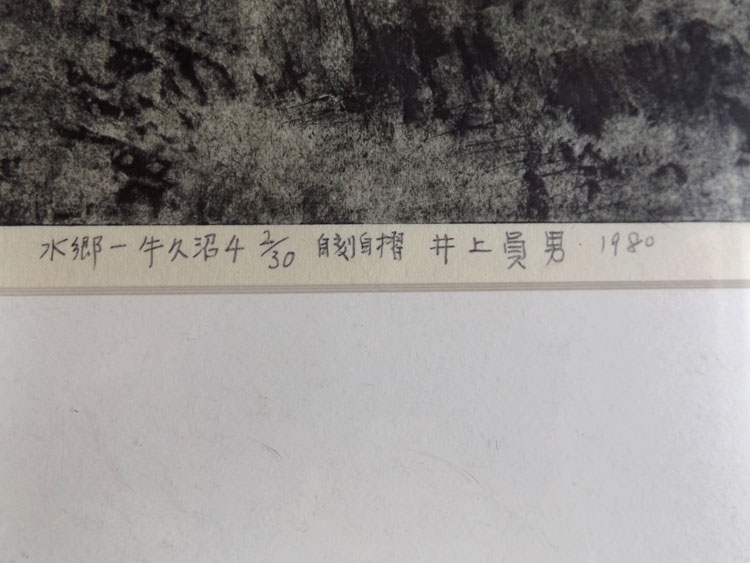 水郷－牛久沼4 2/30 自刻自摺 井上員男・1980